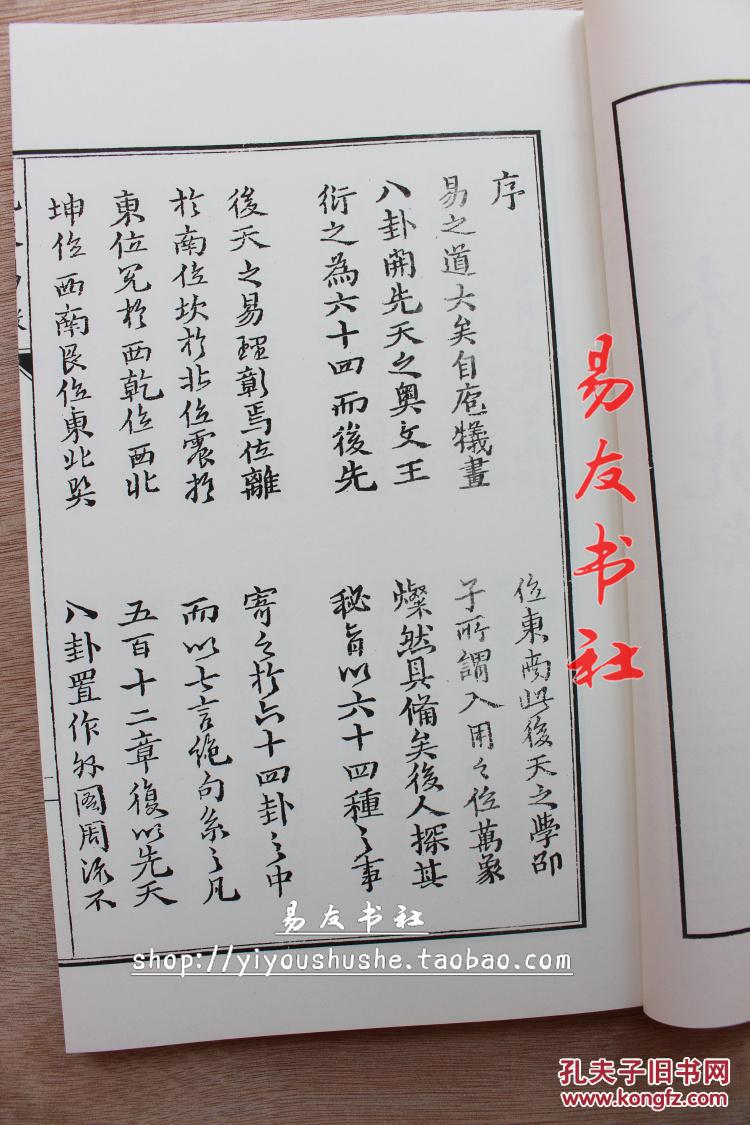 序
易之道大矣自庖犧畫
八卦開先天之奧文王
衍之為六十四而後先
後天之易理彰焉位離
於南位坎於北位震於
東位兌於西乾位西北
坤位西南艮位東北巽
位東南此後天之學邵
子所謂入用之位萬象
燦然具備矣後人探其
秘旨以六十四種之事
寄之於六十四卦之中
而以七言絕句系之凡
五百十二章復以先天
八卦置作外圖周流不
易友书社
易友书社
shop://yiyoushushe.taobao.com
孔夫子旧书网
www.kongfz.com